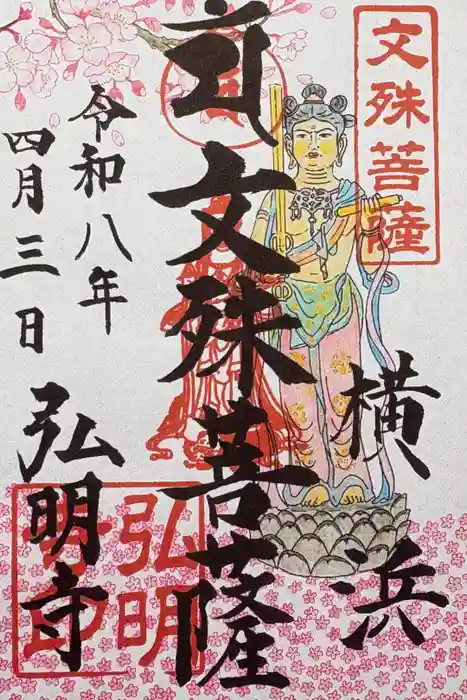 文殊菩薩
横浜
文殊菩薩
令和八年
四月三日
弘明寺
弘明